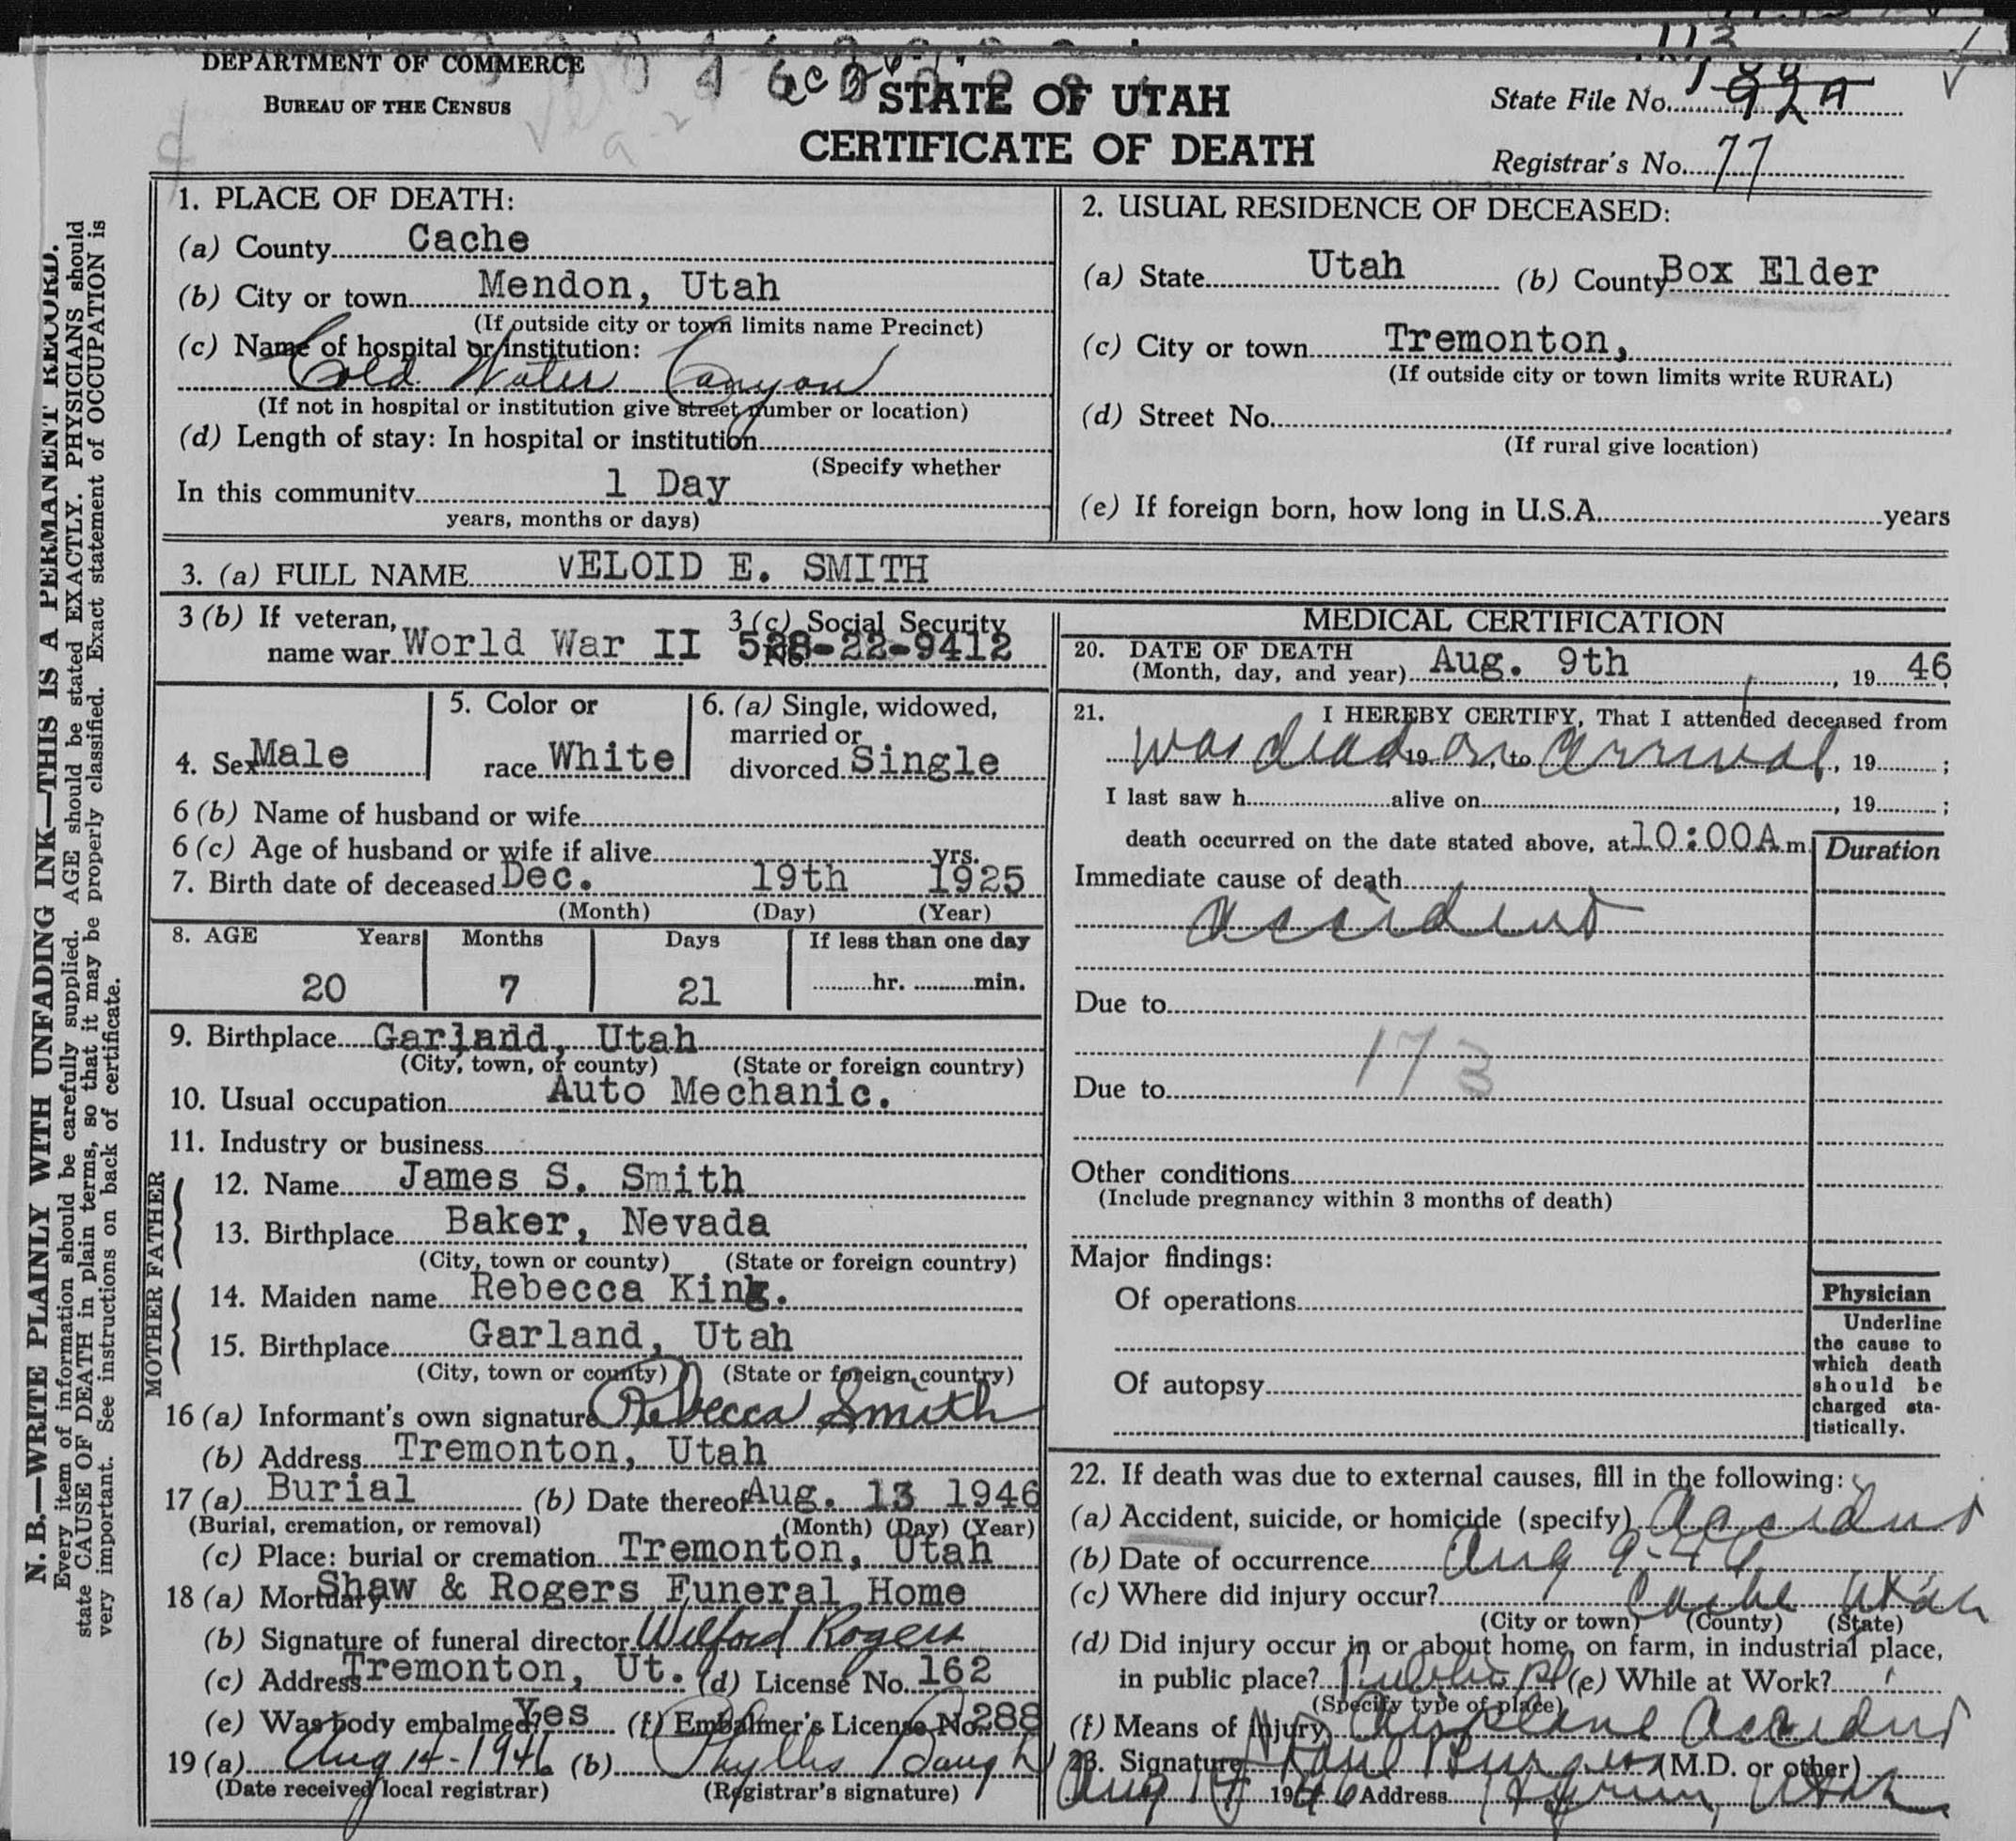 DEPARTMENT OF COMMERCE
BUREAU OF THE CENSUS
STATE OF UTAH
CERTIFICATE OF DEATH
State File No.
Registrar's No. 77
N. B.—WRITE PLAINLY WITH UNFADING INK—THIS IS A PERMANENT RECORD.
Every item of information should be carefully supplied. AGE should be stated EXACTLY. PHYSICIANS should
state CAUSE OF DEATH in plain terms, so that it may be properly classified. Exact statement of OCCUPATION is
very important. See instructions on back of certificate.
1. PLACE OF DEATH:
(a) County Cache
(b) City or town Mendon, Utah
(If outside city or town limits name Precinct)
(c) Name of hospital or institution:
Cold Water Canyon
(If not in hospital or institution give street number or location)
(d) Length of stay: In hospital or institution
(Specify whether
In this community 1 Day
years, months or days)
2. USUAL RESIDENCE OF DECEASED:
(a) State Utah (b) County Box Elder
(c) City or town Tremonton,
(If outside city or town limits write RURAL)
(d) Street No.
(If rural give location)
(e) If foreign born, how long in U.S.A. years
3. (a) FULL NAME vELOID E. SMITH
3 (b) If veteran,
name war World War II
3 (c) Social Security
No. 528-22-9412
4. Sex Male
5. Color or
race White
6. (a) Single, widowed,
married or
divorced Single
6 (b) Name of husband or wife
6 (c) Age of husband or wife if alive yrs.
7. Birth date of deceased Dec. 19th 1925
(Month) (Day) (Year)
8. AGE Years Months Days If less than one day
20 7 21 hr. min.
9. Birthplace Garland, Utah
(City, town, or county) (State or foreign country)
10. Usual occupation Auto Mechanic.
11. Industry or business
FATHER
12. Name James S. Smith
13. Birthplace Baker, Nevada
(City, town or county) (State or foreign country)
MOTHER
14. Maiden name Rebecca King.
15. Birthplace Garland, Utah
(City, town or county) (State or foreign country)
16 (a) Informant's own signature Rebecca Smith
(b) Address Tremonton, Utah
17 (a) Burial (b) Date thereof Aug. 13 1946
(Burial, cremation, or removal) (Month) (Day) (Year)
(c) Place: burial or cremation Tremonton, Utah
18 (a) Mortuary Shaw & Rogers Funeral Home
(b) Signature of funeral director Wilford Rogers
(c) Address Tremonton, Ut. (d) License No. 162
(e) Was body embalmed? Yes (f) Embalmer's License No. 288
19 (a) Aug 14-1946 (b) Phyllis Baugh
(Date received local registrar) (Registrar's signature)
MEDICAL CERTIFICATION
20. DATE OF DEATH
(Month, day, and year) Aug. 9th, 19 46
21. I HEREBY CERTIFY, That I attended deceased from
was dead 19 on, to arrival, 19 ;
I last saw h alive on , 19 ;
death occurred on the date stated above, at 10:00A m.
Duration
Immediate cause of death
accident
Due to
173
Due to
Other conditions
(Include pregnancy within 3 months of death)
Major findings:
Of operations
Of autopsy
Physician
Underline
the cause to
which death
should be
charged sta-
tistically.
22. If death was due to external causes, fill in the following:
(a) Accident, suicide, or homicide (specify) accident
(b) Date of occurrence Aug 9-46
(c) Where did injury occur? Cache Utah
(City or town) (County) (State)
(d) Did injury occur in or about home, on farm, in industrial place,
in public place? Public Pl (e) While at Work?
(Specify type of place)
(f) Means of Injury Airplane Accident
23. Signature Paul Burgess (M.D. or other)
Aug 14 1946 Address Hyrum, Utah